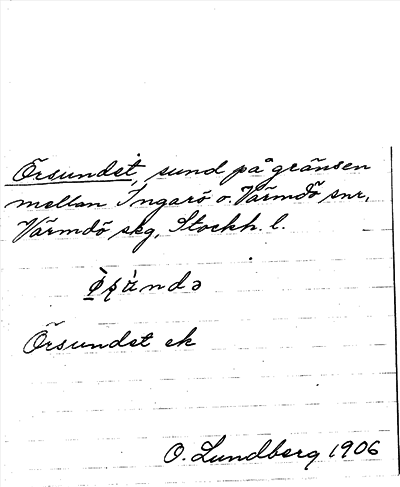 Örsundet, sund på gränsen
mellan Ingarö o. Värmdö snr,
Värmdö skg, Stockh. l.
Örsundet ek
O. Lundberg 1906